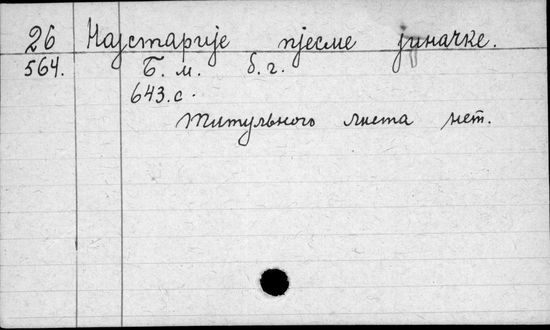 26 Најстарије пјесме јуначке.
564. Б. м. б. г.
643. с.
Титульного листа нет.